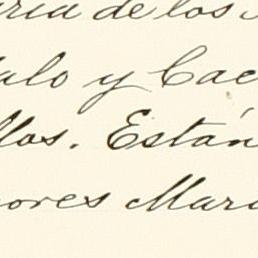 ria de los
alo y Cac
llos. Están
ores Mar